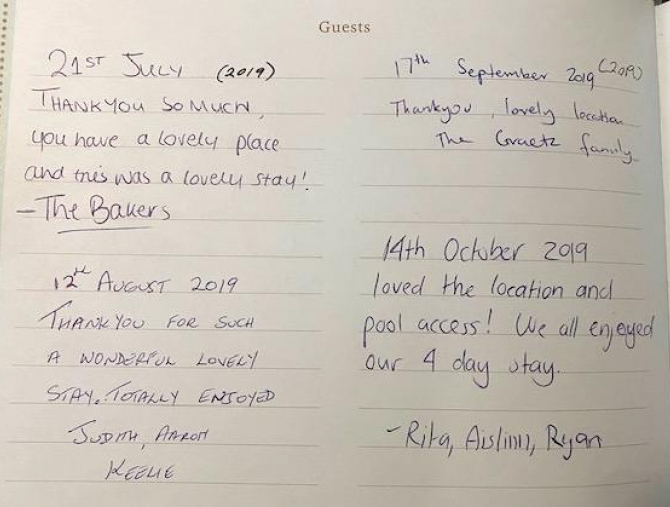 Guests
21ST JULY (2019)
THANKYOU SO MUCH,
you have a lovely place
and this was a lovely stay!
- THE BAKERS
12th AUGUST 2019
THANKYOU FOR SUCH
A WONDERFUL LOVELY
STAY. TOTALLY ENJOYED
JUDITH, AARON
KEELIE
17th September 2019 (2019)
Thankyou, lovely location
The Graetz family
14th October 2019
loved the location and
pool access! We all enjoyed
our 4 day stay.
- Rita, Aislinn, Ryan